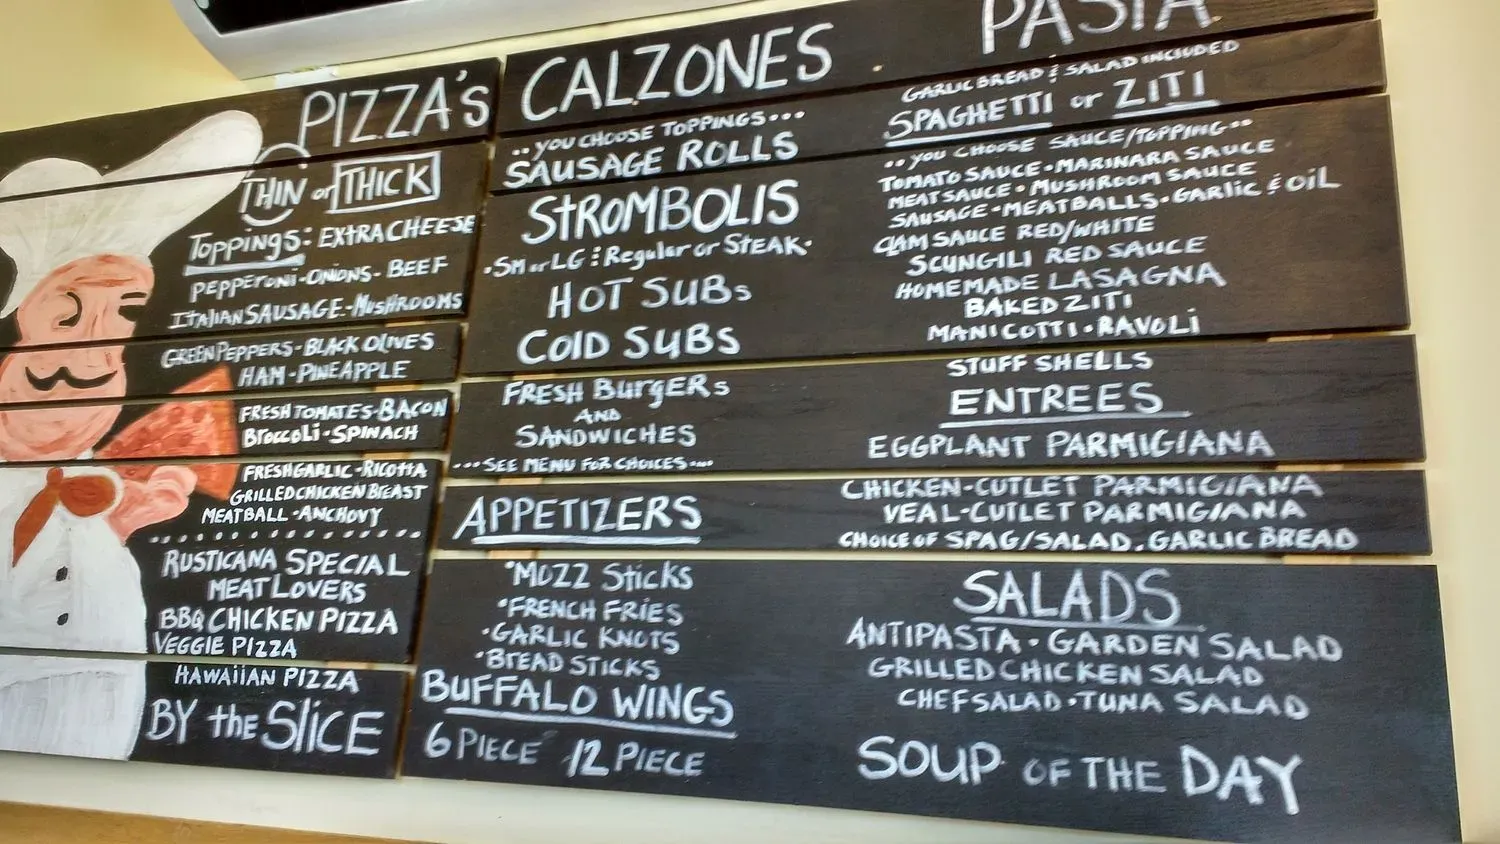 PIZZA'S
THIN or THICK
Toppings: EXTRA CHEESE
PEPPERONI-ONIONS-BEEF
ITALIAN SAUSAGE-MUSHROOMS
GREEN PEPPERS-BLACK OLIVES
HAM-PINEAPPLE
FRESH TOMATES-BACON
BROCCOLI-SPINACH
FRESH GARLIC-RICOTTA
GRILLED CHICKEN BREAST
MEATBALL-ANCHOVY
RUSTICANA SPECIAL
MEAT LOVERS
BBQ CHICKEN PIZZA
VEGGIE PIZZA
HAWAIIAN PIZZA
BY the SLICE
CALZONES
..YOU CHOOSE TOPPINGS...
SAUSAGE ROLLS
STROMBOLIS
•SM or LG : Regular or STEAK•
HOT SUBs
COLD SUBS
FRESH BURGERS
AND
SANDWICHES
...SEE MENU FOR CHOICES....
APPETIZERS
•MOZZ STICKS
•FRENCH FRIES
•GARLIC KNOTS
•BREAD STICKS
BUFFALO WINGS
6 PIECE 12 PIECE
PASTA
GARLIC BREAD & SALAD INCLUDED
SPAGHETTI or ZITI
..YOU CHOOSE SAUCE/TOPPING..
TOMATO SAUCE•MARINARA SAUCE
MEAT SAUCE•MUSHROOM SAUCE
SAUSAGE-MEATBALLS-GARLIC & OIL
CLAM SAUCE RED/WHITE
SCUNGILI RED SAUCE
HOMEMADE LASAGNA
BAKED ZITI
MANICOTTI•RAVOLI
STUFF SHELLS
ENTREES
EGGPLANT PARMIGIANA
CHICKEN-CUTLET PARMIGIANA
VEAL-CUTLET PARMIGIANA
CHOICE OF SPAG/SALAD. GARLIC BREAD
SALADS
ANTIPASTA•GARDEN SALAD
GRILLED CHICKEN SALAD
CHEF SALAD•TUNA SALAD
SOUP OF THE DAY